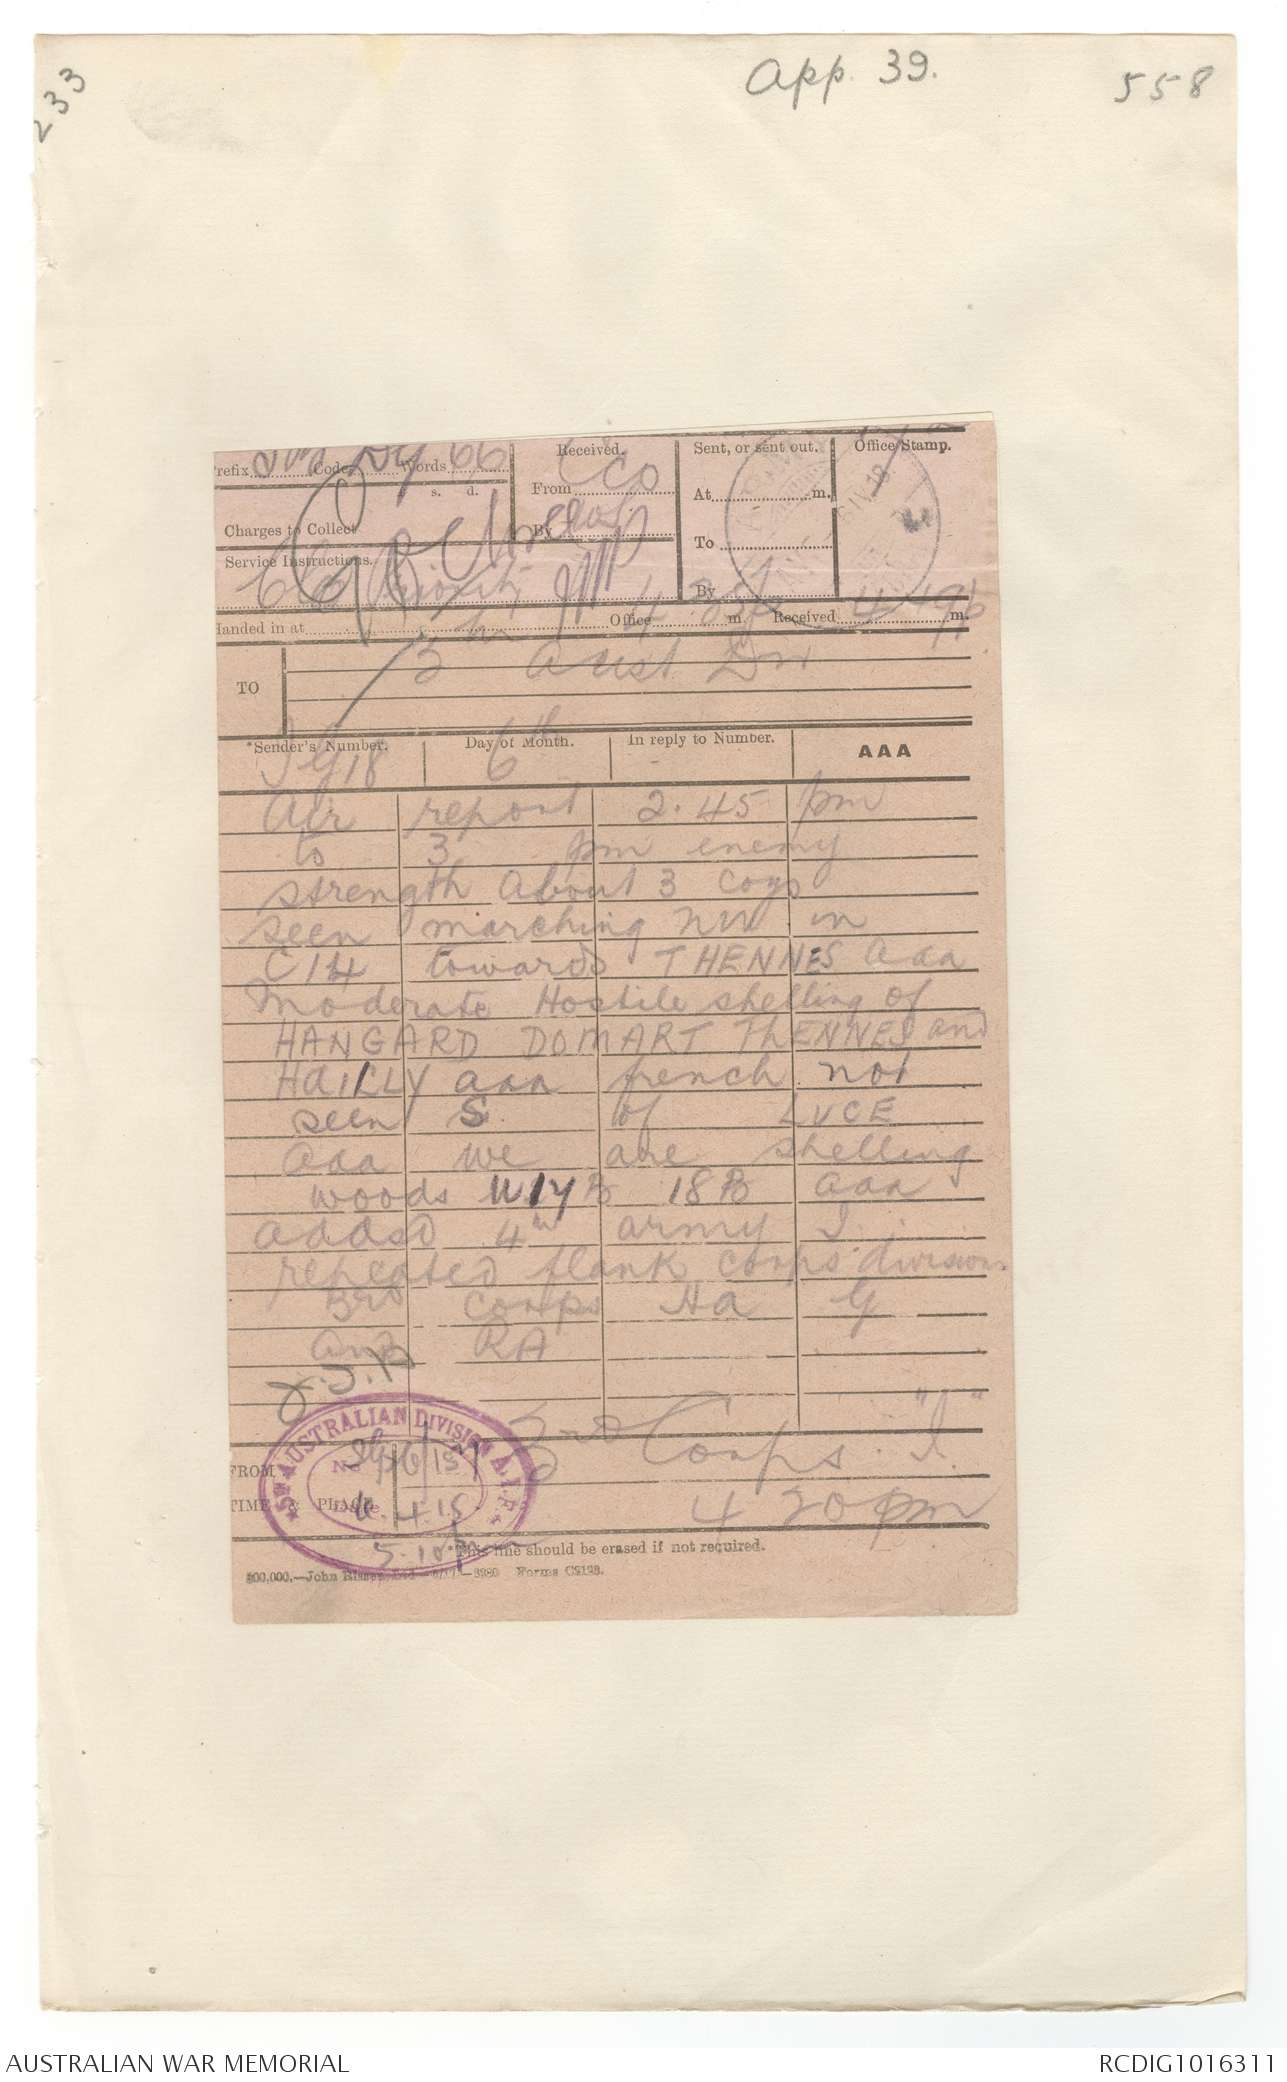 233
App. 39.
558
Prefix Code Words 66
Received.
Sent, or sent out.
Office Stamp.
s. d.
From
At m.
Charges to Collect
By
To
Service Instructions.
Priority
By
Handed in at Office m. Received m.
TO Aust Div
*Sender's Number.
Day of Month.
In reply to Number.
AAA
6th
Air report 2.45 pm
to 3 pm enemy
strength about 3 coys
seen marching NW in
C14 towards THENNES aaa
Moderate Hostile shelling of
HANGARD DOMART THENNES and
HAILLY aaa french not
seen S. of LUCE
aaa we are shelling
woods 18B aaa
addsd 4th army I.
repeated flank corps division
corps G
and RA
5TH AUSTRALIAN DIVISION A.I.F.
3rd Corps "I."
FROM
TIME & PLACE
4 20 pm
*This line should be erased if not required.
Forms C2123.
AUSTRALIAN WAR MEMORIAL
RCDIG1016311